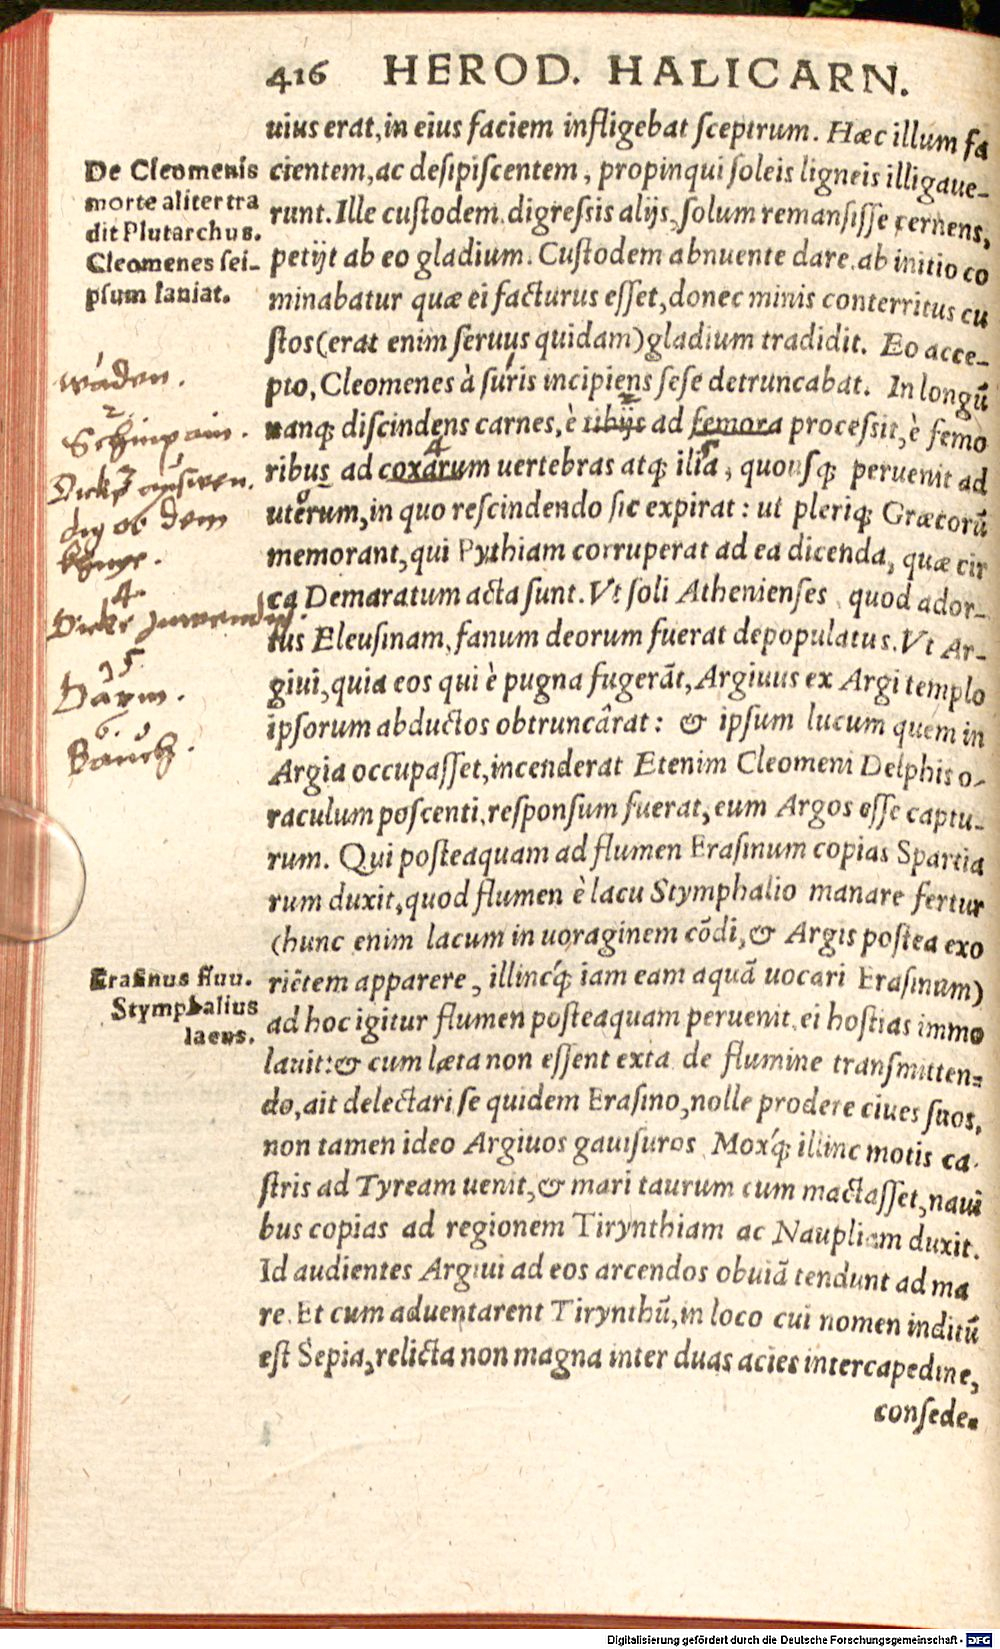 416 HEROD. HALICARN.
uius erat, in eius faciem infligebat sceptrum. Hæc illum fa
cientem, ac desipiscentem, propinqui soleis ligneis illigaue-
runt. Ille custodem, digressis alijs, solum remansisse cernens,
petijt ab eo gladium. Custodem abnuente dare, ab initio co
minabatur quæ ei facturus esset, donec minis conterritus cu
stos (erat enim seruus quidam) gladium tradidit. Eo acce-
pto, Cleomenes à suris incipiens sese detruncabat. In longũ
nanq; discindens carnes, è tibijs ad femora processit, è femo
ribus ad coxarum uertebras atq; ilia, quousq; peruenit ad
uterum, in quo rescindendo sic expirat: ut pleriq; Græcorũ
memorant, qui Pythiam corruperat ad ea dicenda, quæ cir
ca Demaratum acta sunt. Vt soli Athenienses, quod ador-
tus Eleusinam, fanum deorum fuerat depopulatus. Vt Ar-
giui, quia eos qui è pugna fugerãt, Argiuus ex Argi templo
ipsorum abductos obtruncârat: & ipsum lucum quem in
Argia occupasset, incenderat Etenim Cleomeni Delphis o-
raculum poscenti, responsum fuerat, eum Argos esse captu-
rum. Qui posteaquam ad flumen Erasinum copias Spartia
rum duxit, quod flumen è lacu Stymphalio manare fertur
(hunc enim lacum in uoraginem cõdi, & Argis postea exo
riẽtem apparere, illincq́; iam eam aquã uocari Erasinum)
ad hoc igitur flumen posteaquam peruenit, ei hostias immo
lauit: & cum læta non essent exta de flumine transmitten=
do, ait delectari se quidem Erasino, nolle prodere ciues suos,
non tamen ideo Argiuos gauisuros. Moxq́; illinc motis ca-
stris ad Tyream uenit, & mari taurum cum mactasset, naui
bus copias ad regionem Tirynthiam ac Naupliam duxit.
Id audientes Argiui ad eos arcendos obuiã tendunt ad ma
re. Et cum aduentarent Tirynthũ, in loco cui nomen inditũ
est Sepia, relicta non magna inter duas acies intercapedine,
consede-
De Cleomenis
morte aliter tra
dit Plutarchus.
Cleomenes sei-
psum laniat.
waden.
2.
Schinpain.
4.
5.
Därm.
6.
Bauch.
Erasinus fluu.
Stymphalius
lacus.
Digitalisierung gefördert durch die Deutsche Forschungsgemeinschaft - DFG